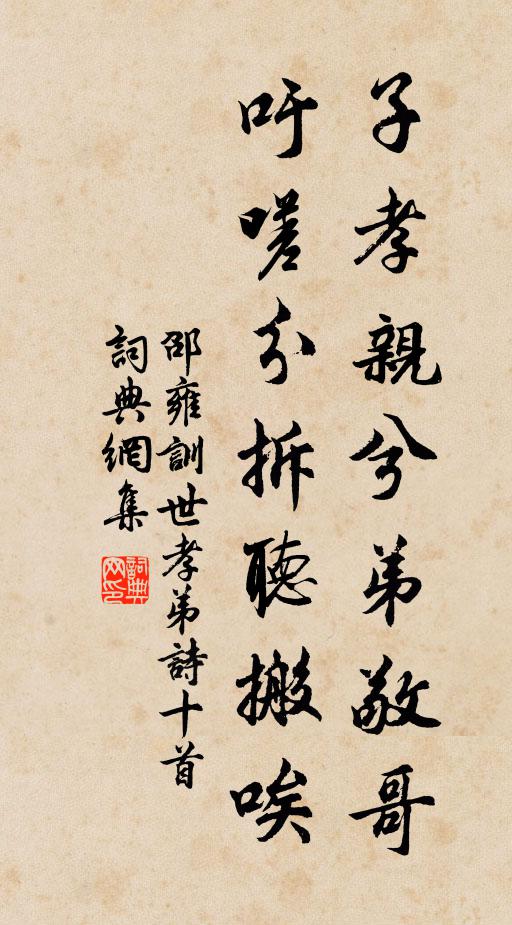 子孝親兮弟敬哥
吁嗟分拆聽搬唆
邵雍訓世孝弟詩十首
詞典網集
詞典网印